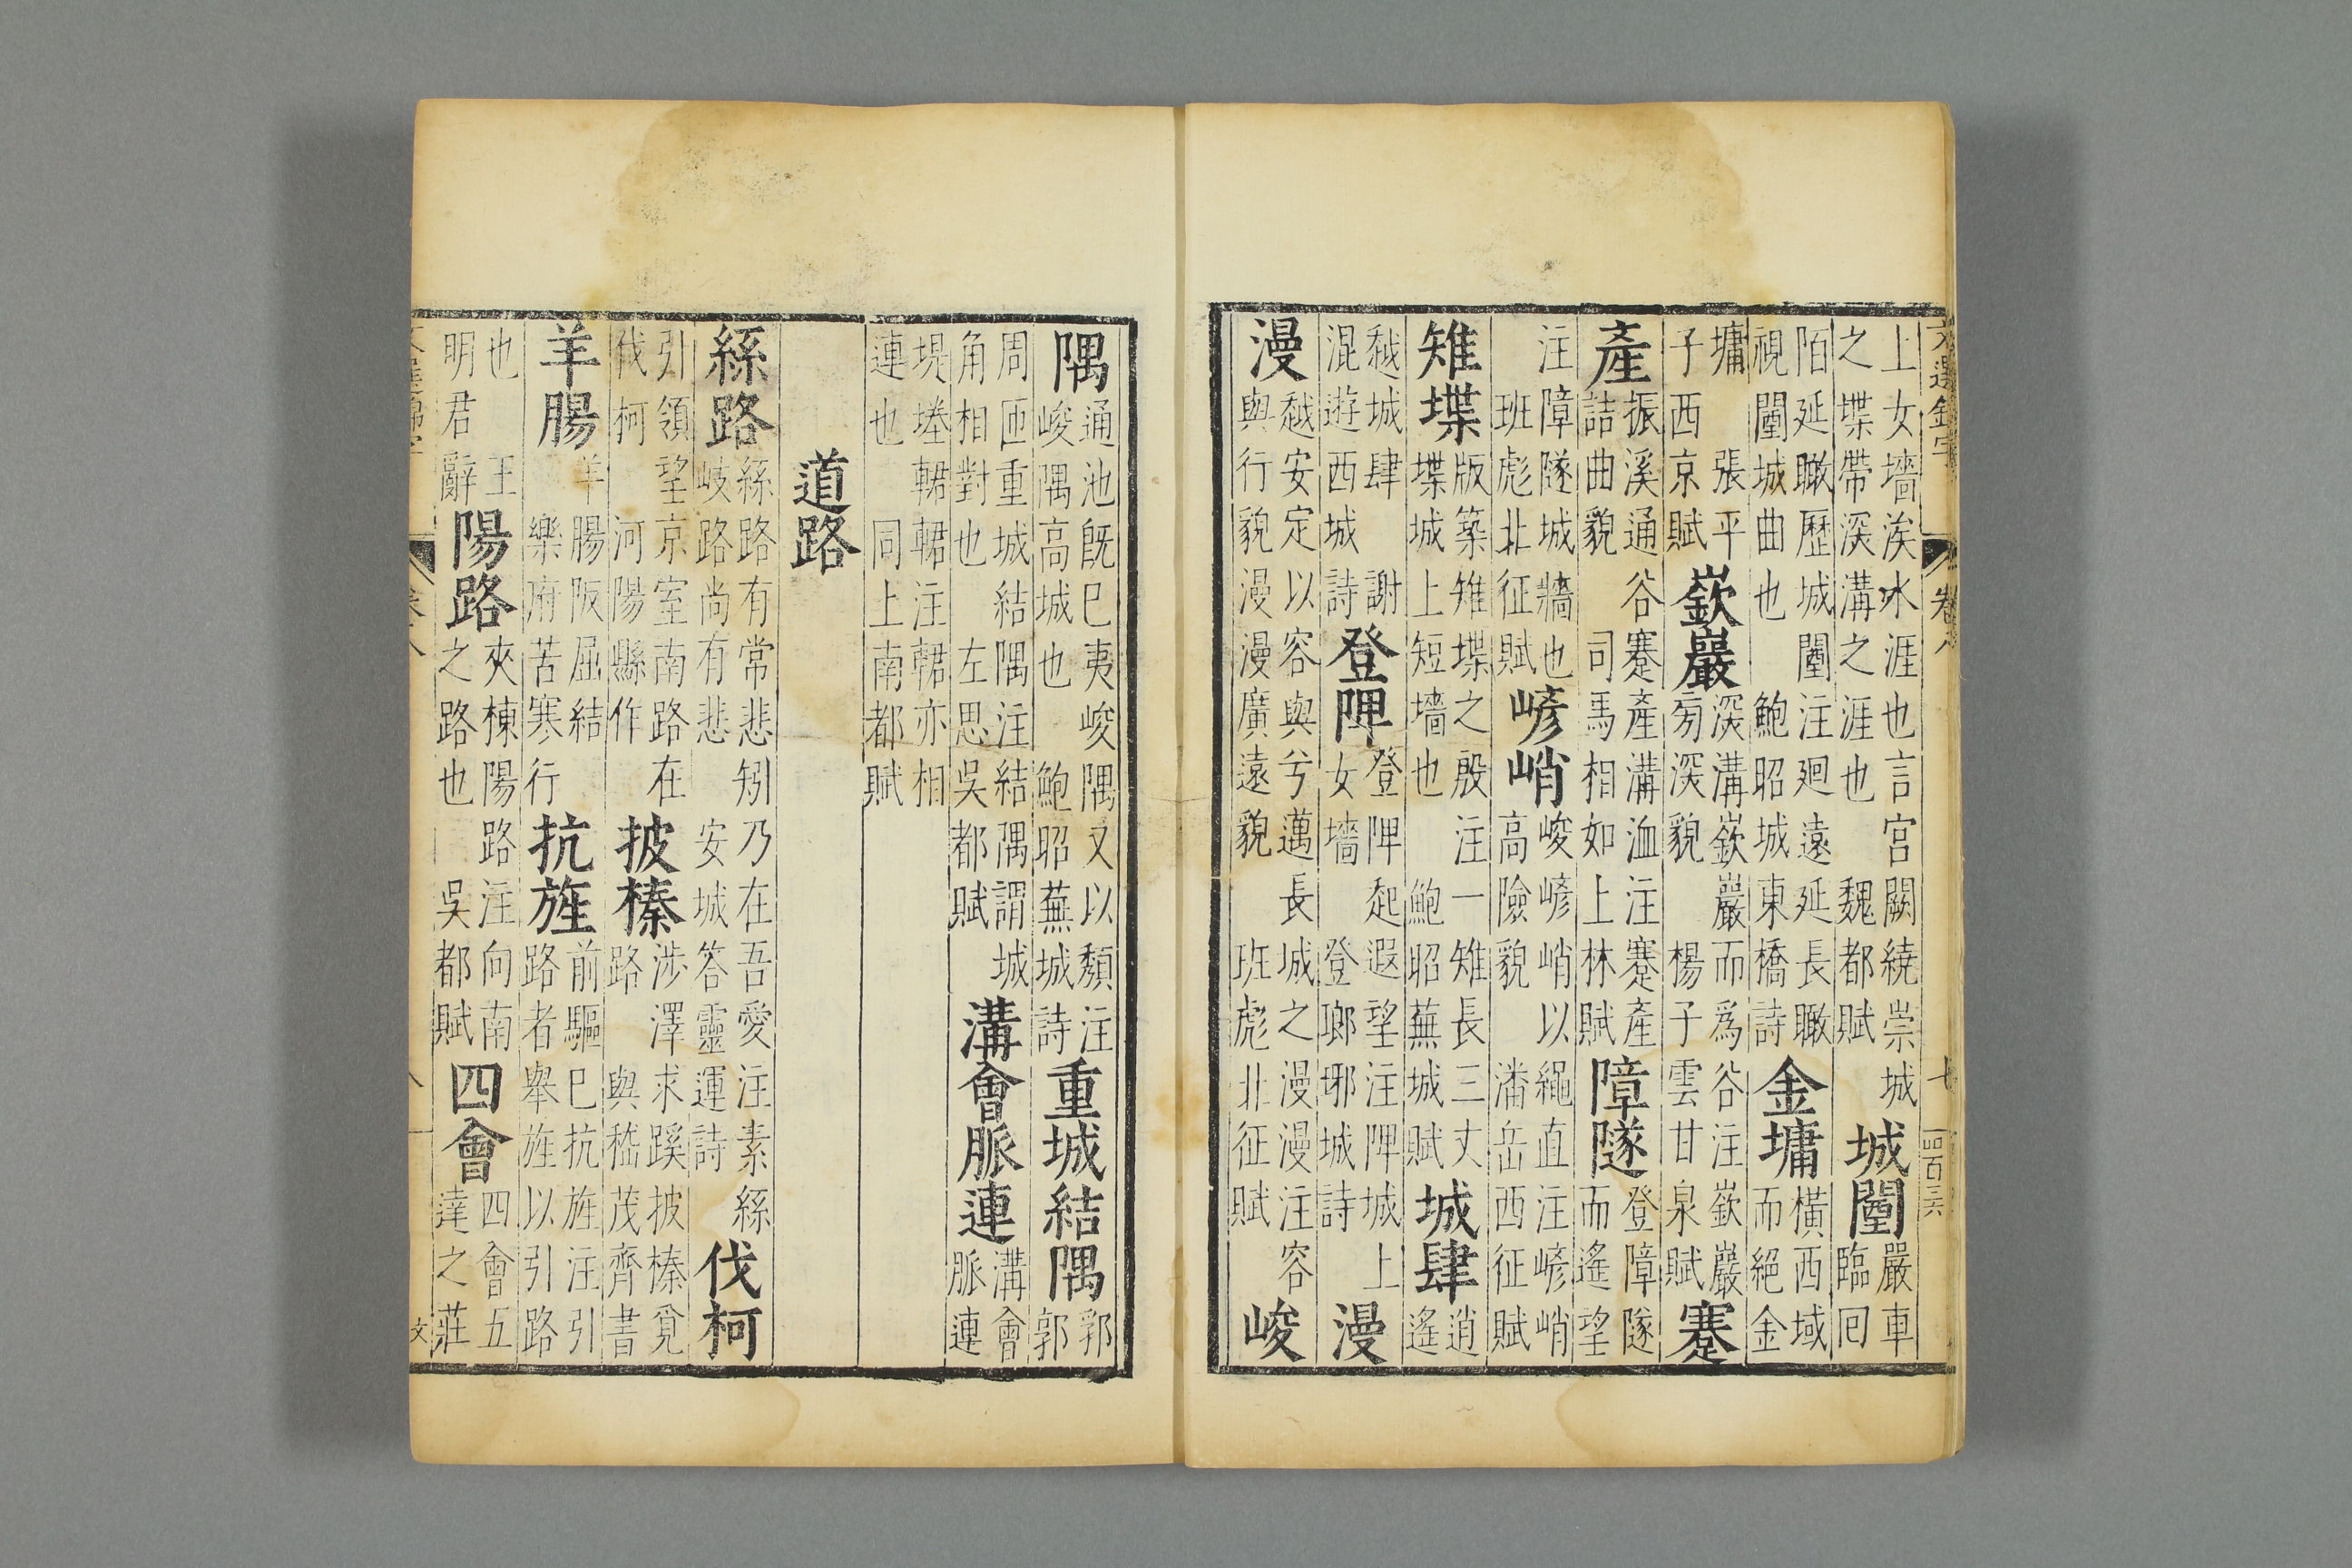 文選錦字 卷八 七 四百三六
上女墻涘水涯也言宮闕繞崇城
之堞帶深溝之涯也 魏都賦
城闉
嚴車
臨囘
陌延瞰歷城闉注廻遠延長瞰
視闉城曲也 鮑昭城東橋詩
金墉
橫西域
而絕金
墉 張平
子西京賦
嶔巖
深溝嶔巖而爲谷注嶔巖
㫄深貌 楊子雲甘泉賦
蹇
產
振溪通谷蹇產溝洫注蹇產
詰曲貌 司馬相如上林賦
障隧
登障隧
而遙望
注障隧城牆也
班彪北征賦
嵃峭
峻嵃峭以繩直注嵃峭
高險貌 潘岳西征賦
雉堞
版築雉堞之殷注一雉長三丈
堞城上短墻也 鮑昭蕪城賦
城肆
逍
遙
越城肆 謝
混遊西城詩
登陴
登陴起遐望注陴城上
女墻 登瑯琊城詩
漫
漫
越安定以容與兮邁長城之漫漫注容
與行貌漫漫廣遠貌 班彪北征賦
峻
隅
通池旣已夷峻隅又以頹注
峻隅高城也 鮑昭蕪城詩
重城結隅
郛
郭
周匝重城結隅注結隅謂城
角相對也 左思吳都賦
溝會脈連
溝會
脈連
堤塍輑輑注輑亦相
連也 同上南都賦
道路
絲路
絲路有常悲矧乃在吾愛注素絲
岐路尚有悲 安城答靈運詩
伐柯
引領望京室南路在
伐柯 河陽縣作
披榛
涉澤求蹊披榛覓
路 與嵇茂齊書
羊腸
羊腸阪屈結
樂府苦寒行
抗旌
前驅已抗旌注引
路者舉旌以引路
也 王
明君辭
陽路
夾棟陽路注向南
之路也 吳都賦
四會
四會五
達之莊